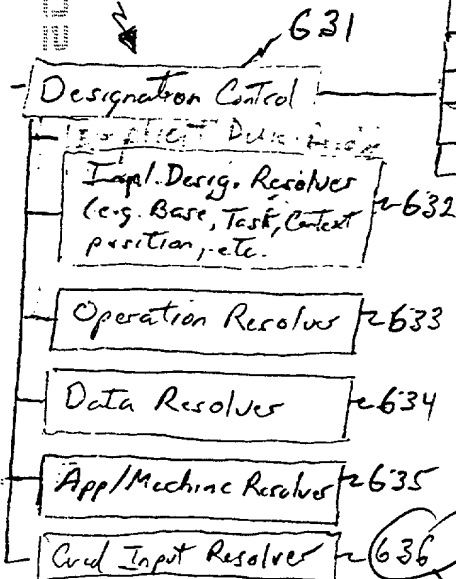 631
Designation Control
Impl. Desig. Resolver
(e.g. Base, Task, Context
position, etc.
632
Operation Resolver
633
Data Resolver
634
App/Machine Resolver
635
Input Resolver
636